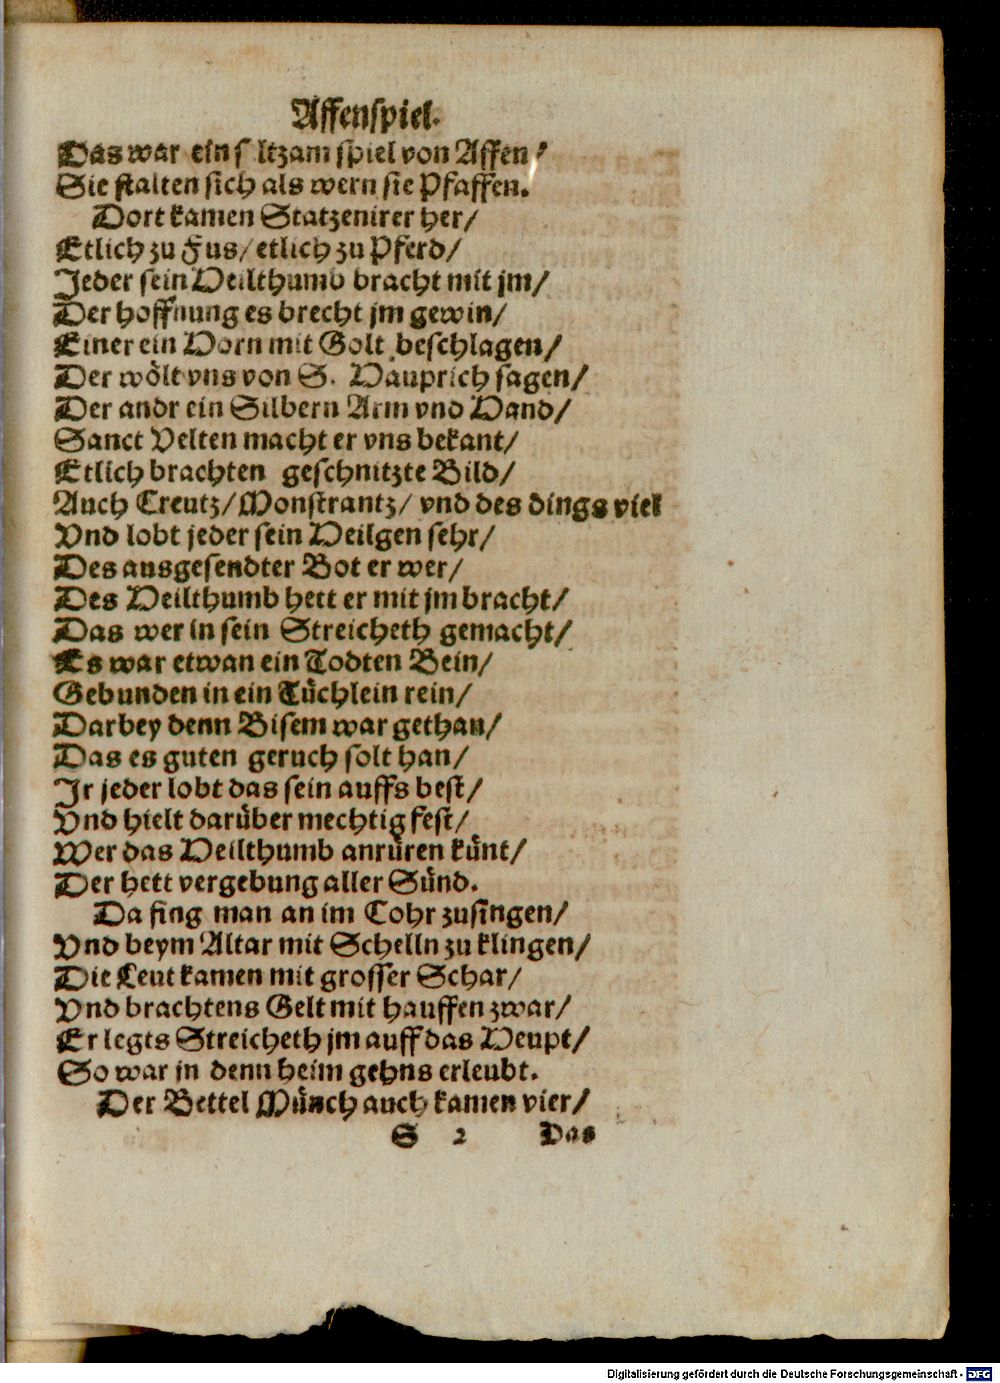 Affenspiel.
Das war ein s ltzam spiel von Affen /
Sie stalten sich als wern sie Pfaffen.
Dort kamen Statzenirer her /
Etlich zu Fus / etlich zu Pferd /
Jeder sein Heilthumb bracht mit jm /
Der hoffnung es brecht jm gewin /
Einer ein Horn mit Golt beschlagen /
Der wölt vns von S. Hauprich sagen /
Der andr ein Silbern Arm vnd Hand /
Sanct Velten macht er vns bekant /
Etlich brachten geschnitzte Bild /
Auch Creutz / Monstrantz / vnd des dings viel
Vnd lobt jeder sein Heilgen sehr /
Des ausgesendter Bot er wer /
Des Heilthumb hett er mit jm bracht /
Das wer in sein Streicheth gemacht /
Es war etwan ein Todten Bein /
Gebunden in ein Tüchlein rein /
Darbey denn Bisem war gethan /
Das es guten geruch solt han /
Jr jeder lobt das sein auffs best /
Vnd hielt darüber mechtig fest /
Wer das Heilthumb anrüren künt /
Der hett vergebung aller Sünd.
Da fing man an im Cohr zusingen /
Vnd beym Altar mit Schelln zu klingen /
Die Leut kamen mit grosser Schar /
Vnd brachtens Gelt mit hauffen zwar /
Er legts Streicheth jm auff das Heupt /
So war jn denn heim gehns erleubt.
Der Bettel Münch auch kamen vier /
S 2 Das
Digitalisierung gefördert durch die Deutsche Forschungsgemeinschaft - DFG